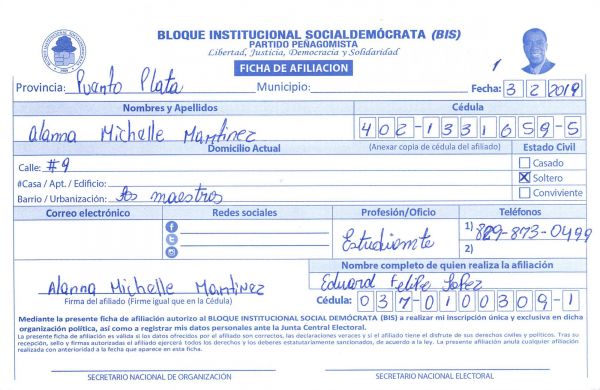 BLOQUE INSTITUCIONAL SOCIALDEMÓCRATA (BIS)
PARTIDO PEÑAGOMISTA
Libertad, Justicia, Democracia y Solidaridad
FICHA DE AFILIACION
1
Provincia: Puanto Plata Municipio: Fecha: 3 2 2019
Nombres y Apellidos Cédula
Alanna Michelle Martinez 402-1331659-5
Domicilio Actual (Anexar copia de cédula del afiliado) Estado Civil
Calle: #9 Casado
#Casa / Apt. / Edificio: X Soltero
Barrio / Urbanización: los maestros Conviviente
Correo electrónico Redes sociales Profesión/Oficio Teléfonos
Estudiante 1) 829-873-0499
2)
Nombre completo de quien realiza la afiliación
Alanna Michelle Martinez Eduard Felipe
Firma del afiliado (Firme igual que en la Cédula) Cédula: 037-0100309-1
Mediante la presente ficha de afiliación autorizo al BLOQUE INSTITUCIONAL SOCIAL DEMÓCRATA (BIS) a realizar mi inscripción única y exclusiva en dicha
organización política, así como a registrar mis datos personales ante la Junta Central Electoral.
La presente ficha de afiliación es válida si los datos ofrecidos por el afiliado son correctos, las declaraciones veraces y si el afiliado tiene el disfrute de sus derechos civiles y políticos. Tras su
recepción, sello y firmas autorizadas el afiliado ejercerá todos los derechos y los deberes estatutariamente sancionados, de acuerdo a la ley. La presente afiliación anula cualquier afiliación
realizada con anterioridad a la fecha que aparece en esta ficha.
SECRETARIO NACIONAL DE ORGANIZACIÓN SECRETARIO NACIONAL ELECTORAL